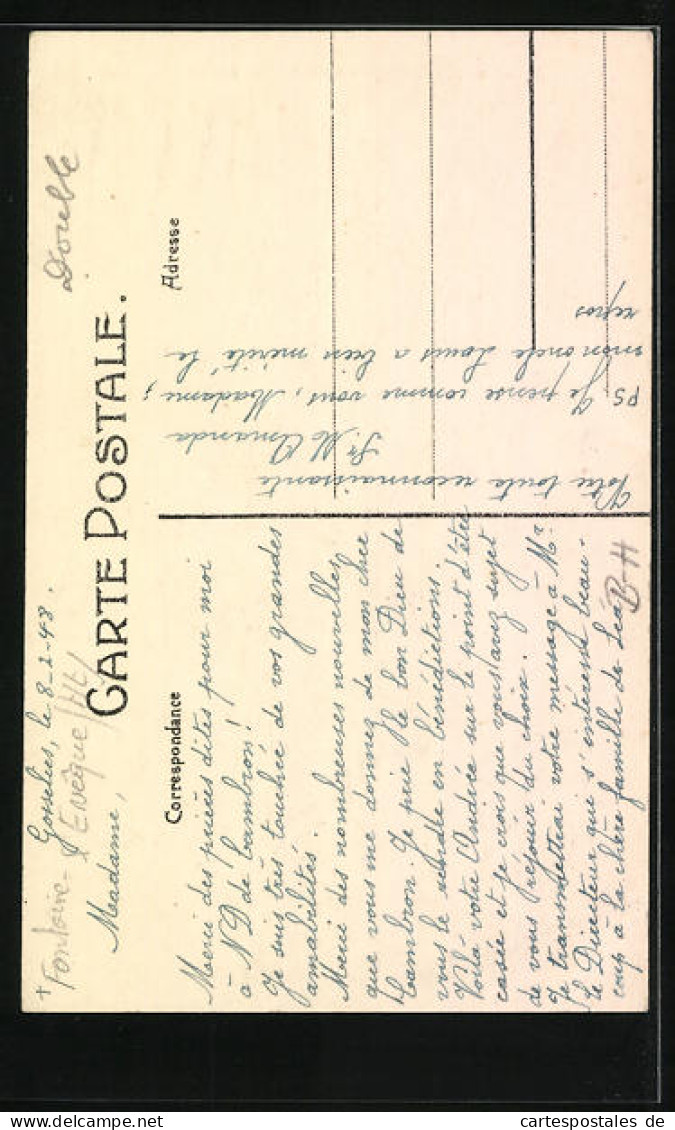 +
Fontaine-
l'Evêque/Ht/
Double
Gosselies, le 8-2-48.
Madame,
CARTE POSTALE.
Correspondance
Adresse
Merci des prières dites pour moi
à N D de Cambron!
Je suis très touchée de vos grandes
amabilités.
Merci des nombreuses nouvelles
que vous me donnez de mon cher
Cambron. Je prie le bon Dieu de
vous le rendre en bénédictions.
Voilà votre Andrée sur le point d'être
casée et je crois que vous avez sujet
de vous réjouir du choix.
Je transmettrai votre message à Mr
le Directeur qui s'intéresse beau-
coup à la chère famille de Léa,
B-H
Votre toute reconnaissante
Sr M Amanda
PS Je pense comme vous, Madame,
mon oncle Louis a bien mérité le
repos
www.cartespostales.de
cartespostales de